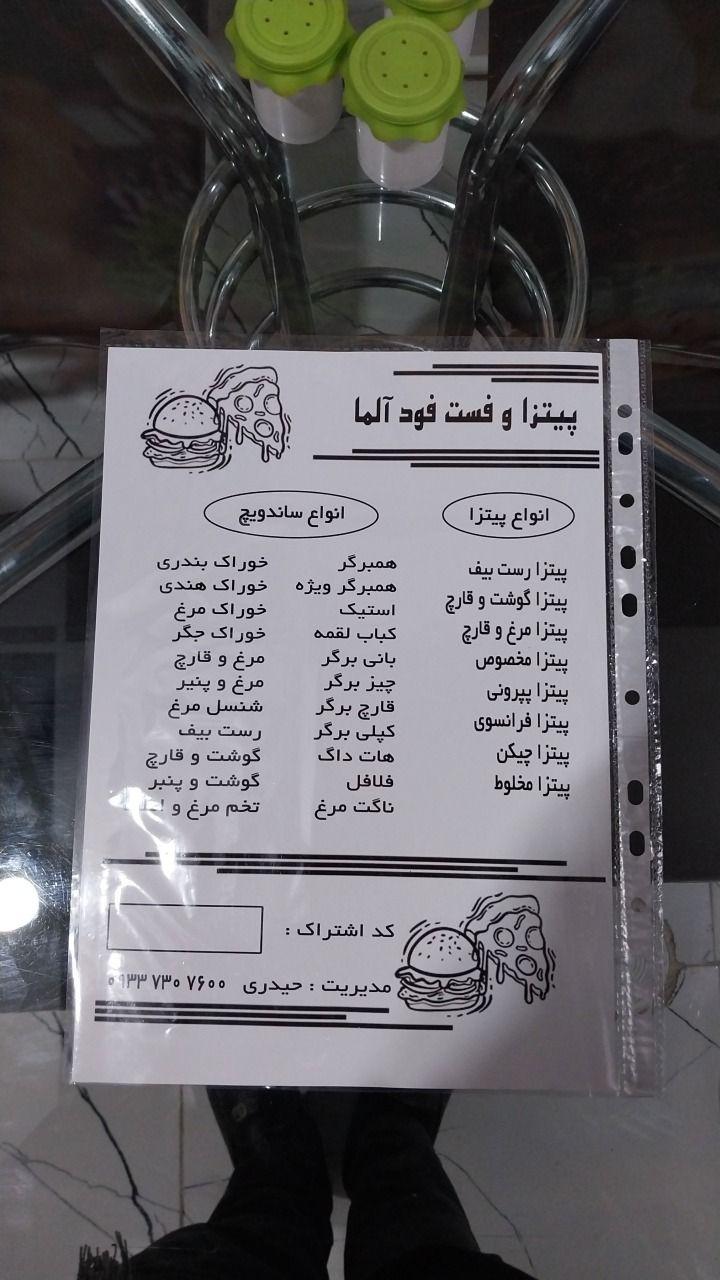 پیتزا و فست فود آلما
انواع پیتزا
پیتزا رست بیف
پیتزا گوشت و قارچ
پیتزا مرغ و قارچ
پیتزا مخصوص
پیتزا پپرونی
پیتزا فرانسوی
پیتزا چیکن
پیتزا مخلوط
انواع ساندویچ
همبرگر
همبرگر ویژه
استیک
کباب لقمه
بانی برگر
چیز برگر
قارچ برگر
کپلی برگر
هات داگ
فلافل
ناگت مرغ
خوراک بندری
خوراک هندی
خوراک مرغ
خوراک جگر
مرغ و قارچ
مرغ و پنیر
شنسل مرغ
رست بیف
گوشت و قارچ
گوشت و پنیر
تخم مرغ و
کد اشتراک :
مدیریت : حیدری ۰۹۳۳ ۷۳۰ ۷۶۰۰